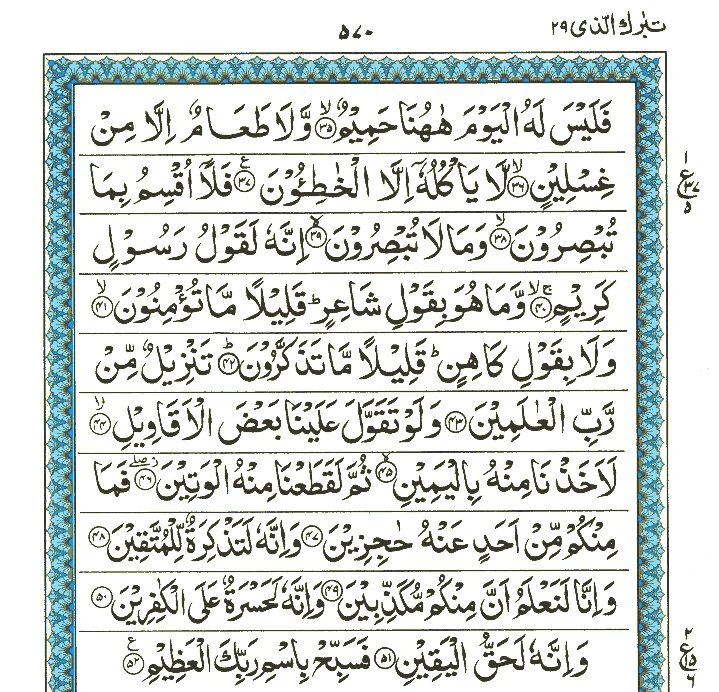 تبٰرك الذی ۲۹
۵۷۰
فَلَیْسَ لَهُ الْیَوْمَ هٰهُنَا حَمِیْمٌ ۙ﴿۳۵﴾ وَّلَا طَعَامٌ اِلَّا مِنْ
غِسْلِیْنٍ ۙ﴿۳۶﴾ لَّا یَاْكُلُهٗۤ اِلَّا الْخٰطِـُٔوْنَ ﴿۳۷﴾ ع فَلَاۤ اُقْسِمُ بِمَا
تُبْصِرُوْنَ ۙ﴿۳۸﴾ وَمَا لَا تُبْصِرُوْنَ ۙ﴿۳۹﴾ اِنَّهٗ لَقَوْلُ رَسُوْلٍ
كَرِیْمٍ ۚۙ﴿۴۰﴾ وَّمَا هُوَ بِقَوْلِ شَاعِرٍ ؕ قَلِیْلًا مَّا تُؤْمِنُوْنَ ۙ﴿۴۱﴾
وَلَا بِقَوْلِ كَاهِنٍ ؕ قَلِیْلًا مَّا تَذَكَّرُوْنَ ؕ﴿۴۲﴾ تَنْزِیْلٌ مِّنْ
رَّبِّ الْعٰلَمِیْنَ ﴿۴۳﴾ وَلَوْ تَقَوَّلَ عَلَیْنَا بَعْضَ الْاَقَاوِیْلِ ۙ﴿۴۴﴾
لَاَخَذْنَا مِنْهُ بِالْیَمِیْنِ ۙ﴿۴۵﴾ ثُمَّ لَقَطَعْنَا مِنْهُ الْوَتِیْنَ ۖز﴿۴۶﴾ فَمَا
مِنْكُمْ مِّنْ اَحَدٍ عَنْهُ حٰجِزِیْنَ ﴿۴۷﴾ وَاِنَّهٗ لَتَذْكِرَةٌ لِّلْمُتَّقِیْنَ ﴿۴۸﴾
وَاِنَّا لَنَعْلَمُ اَنَّ مِنْكُمْ مُّكَذِّبِیْنَ ﴿۴۹﴾ وَاِنَّهٗ لَحَسْرَةٌ عَلَی الْكٰفِرِیْنَ ﴿۵۰﴾
وَاِنَّهٗ لَحَقُّ الْیَقِیْنِ ﴿۵۱﴾ فَسَبِّحْ بِاسْمِ رَبِّكَ الْعَظِیْمِ ﴿۵۲﴾ ع
۱
ع ۳۷
۵
۲
ع ۱۵
۶